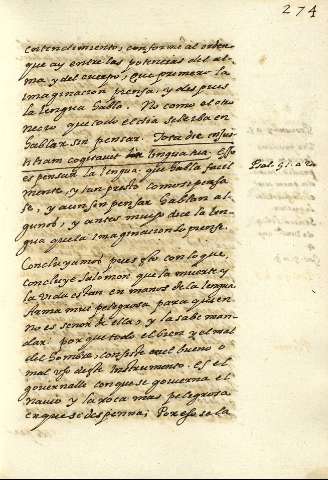 274
entendimiento, conforme al orden
que ay entre las potencias del al-
ma, y del cuerpo, Que primero la
imaginacion piensa, y despues
la lengua habla. No como el otro
necio que todo el dia se le va en
hablar sin pensar. Tota die iniusti-
tiam cogitavit lingua tua. Esso
es pensar la lengua, que habla facil
mente, y tan presto como si pensa
se, y aun sin pensar hablan al-
gunos, y antes muchas dice la len-
gua que la imaginacion lo piense.
Psal. 51. a
Concluyamos pues esto con lo que
concluye Salomon que la muerte y
la vida estan en manos de la lengua
Arma muy peligrosa para quien
no es señor de ella, y la sabe man-
dar: porque todo el bien y el mal
del hombre, consiste en el bueno o
mal uso deste instrumento. Es el
governalle con que se govierna el
navio y la roca mas peligrosa
en que se despenna; Por esso la